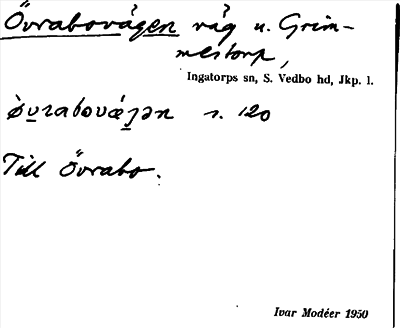 Övrabovägen väg u. Grim-
mestorp,
Ingatorps sn, S. Vedbo hd, Jkp. l.
s. 120
Till Övrabo.
Ivar Modéer 1950